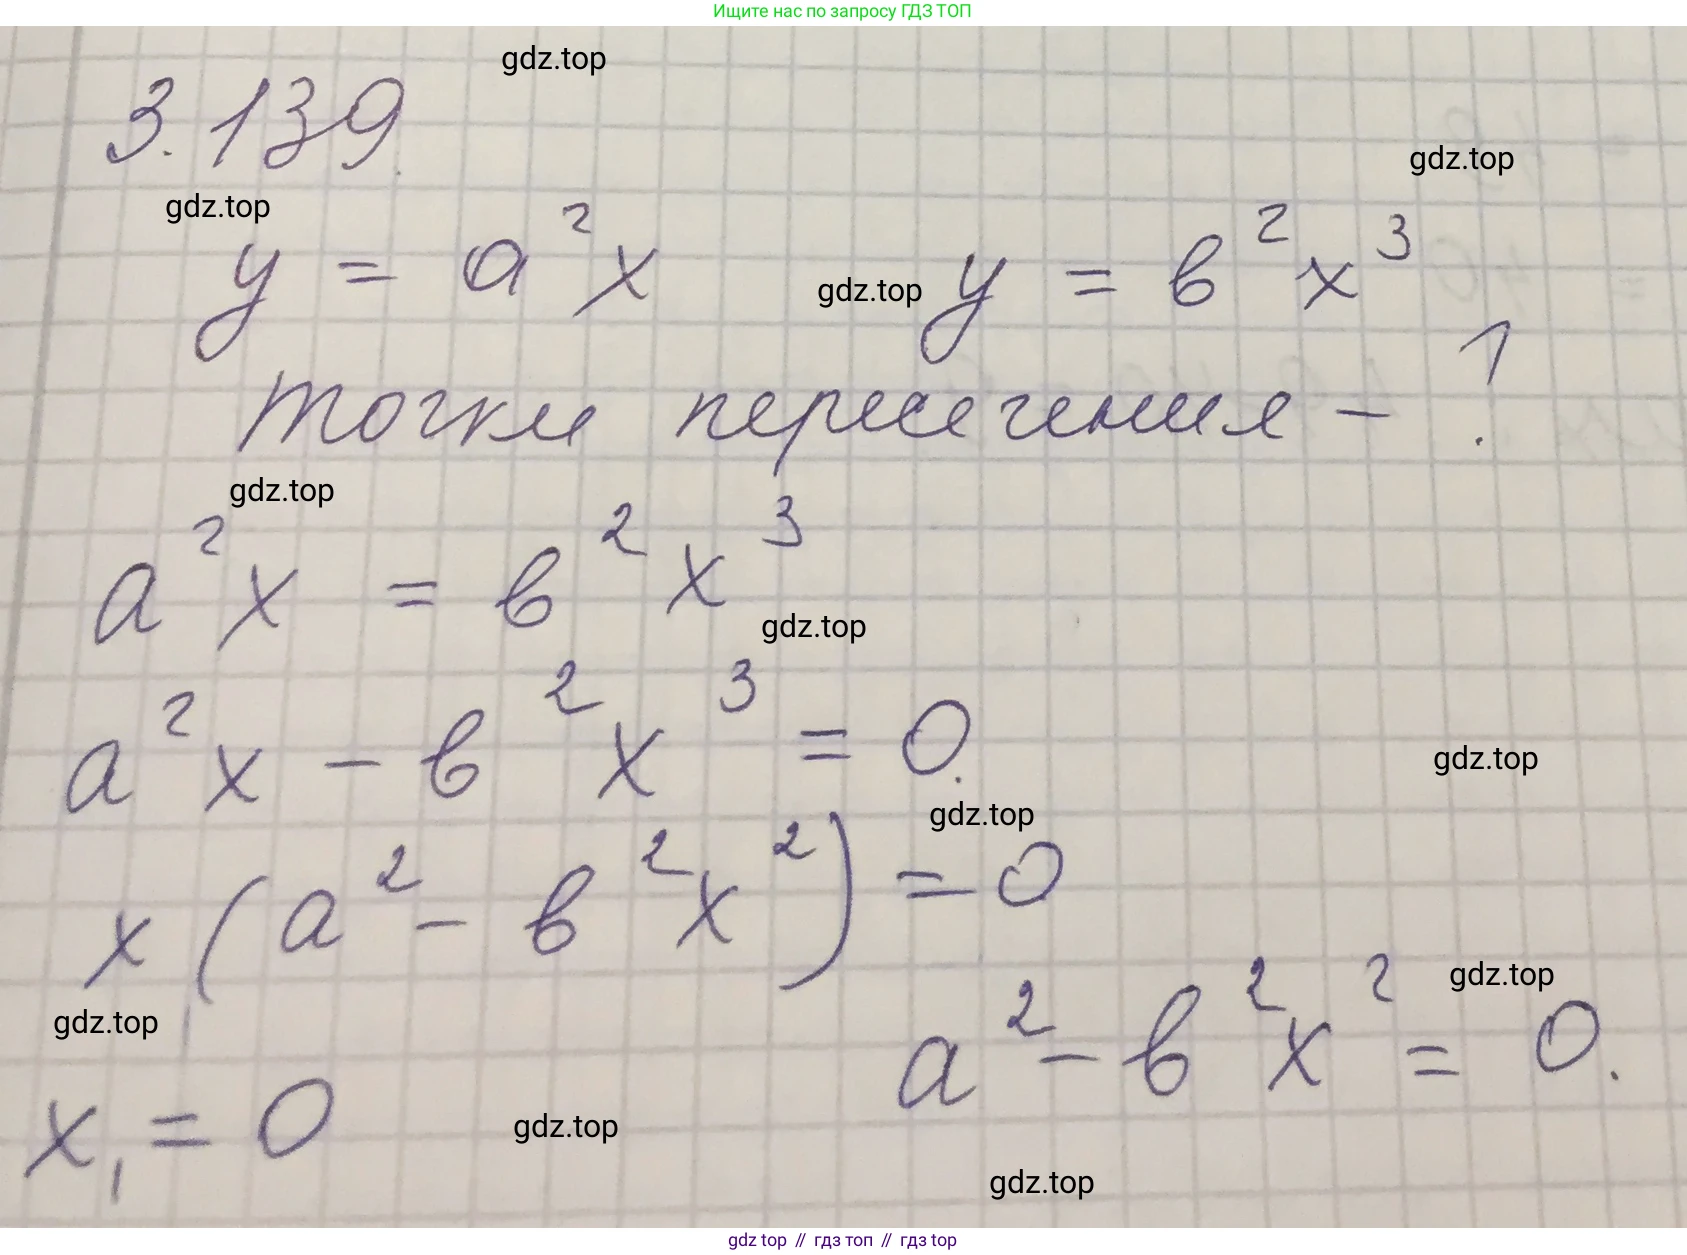 Ищите нас по запросу ГДЗ ТОП
gdz.top
3.139.
gdz.top
gdz.top
y = a²x gdz.top y = в²x³
точки пересечения – ?
gdz.top
a²x = в²x³
gdz.top
a²x – в²x³ = 0.
gdz.top
gdz.top
x(a² – в²x²) = 0
gdz.top
gdz.top
a² – в²x² = 0.
x₁ = 0
gdz.top
gdz.top
gdz top // гдз топ // gdz top